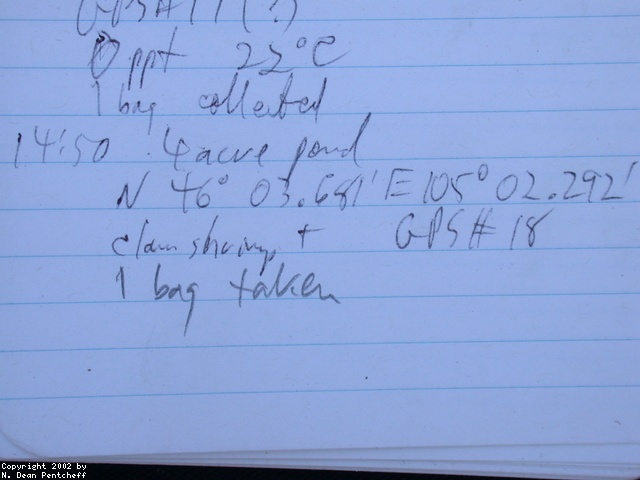 GPS# 17 (?)
0 ppt 22°C
1 bag collected
14:50 4 acre pond
N 46° 03.681' E 105° 02.292'
clam shrimp + GPS# 18
1 bag taken
Copyright 2002 by
N. Dean Pentcheff